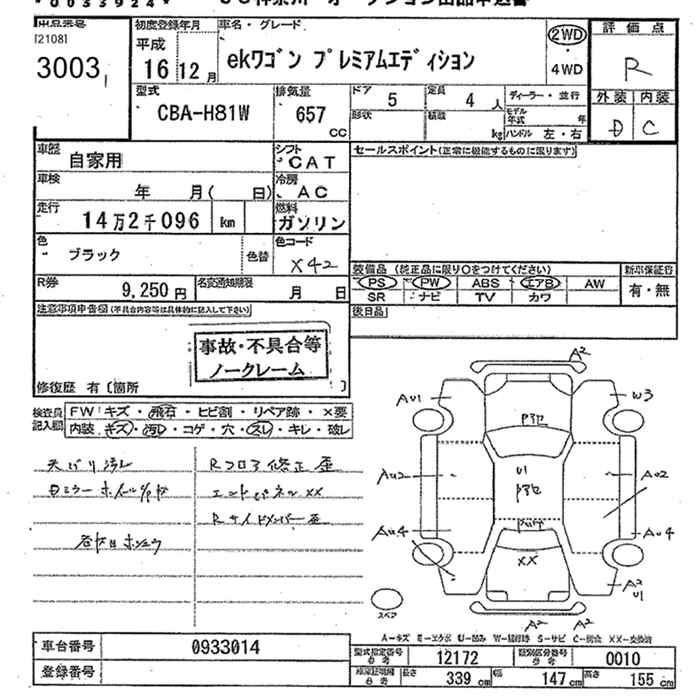 *0033924*
出品申込書
[2108]
3003
初度登録年月
平成
16 12 月
車名・グレード
ekワゴン プレミアムエディション
2WD
4WD
評価点
R
外装 内装
D C
型式
CBA-H81W
排気量
657 CC
ドア 5
定員 4 人
形状
積載 kg
ディーラー・並行
モデル年式 年
ハンドル 左・右
車歴 自家用
シフト CAT
車検 年 月( 日)
冷房 AC
走行 14万2千096 km
燃料 ガソリン
色 ブラック
色替
色コード X42
R券 9,250円
名変通知期限 月 日
セールスポイント(正常に機能するものに限ります)
装備品 (純正品に限り○をつけてください)
PS PW ABS エアB AW
SR ナビ TV カワ
新車保証書
有・無
後日品
注意事項申告欄(不具合内容等は具体的に記入して下さい)
事故・不具合等
ノークレーム
修復歴 有〔箇所 〕
検査員記入欄
FW キズ・飛石・ヒビ割・リペア跡・×要
内装 キズ・汚レ・コゲ・穴・スレ・キレ・破レ
天バリ汚レ
Rフロア修正歪
エンドパネルXX
Rサイドメンバー歪
A2
AU1
W3
U1
AU2
AU2
AU4
AU4
XX
A2
U1
A2
A2
スペア
A-キズ E-エクボ U-凹み W-補修跡 S-サビ C-腐食 XX-交換済
車台番号 0933014
登録番号
型式指定番号 参考 12172
類別区分番号 参考 0010
参考 長さ 339 cm 幅 147 cm 高さ 155 cm